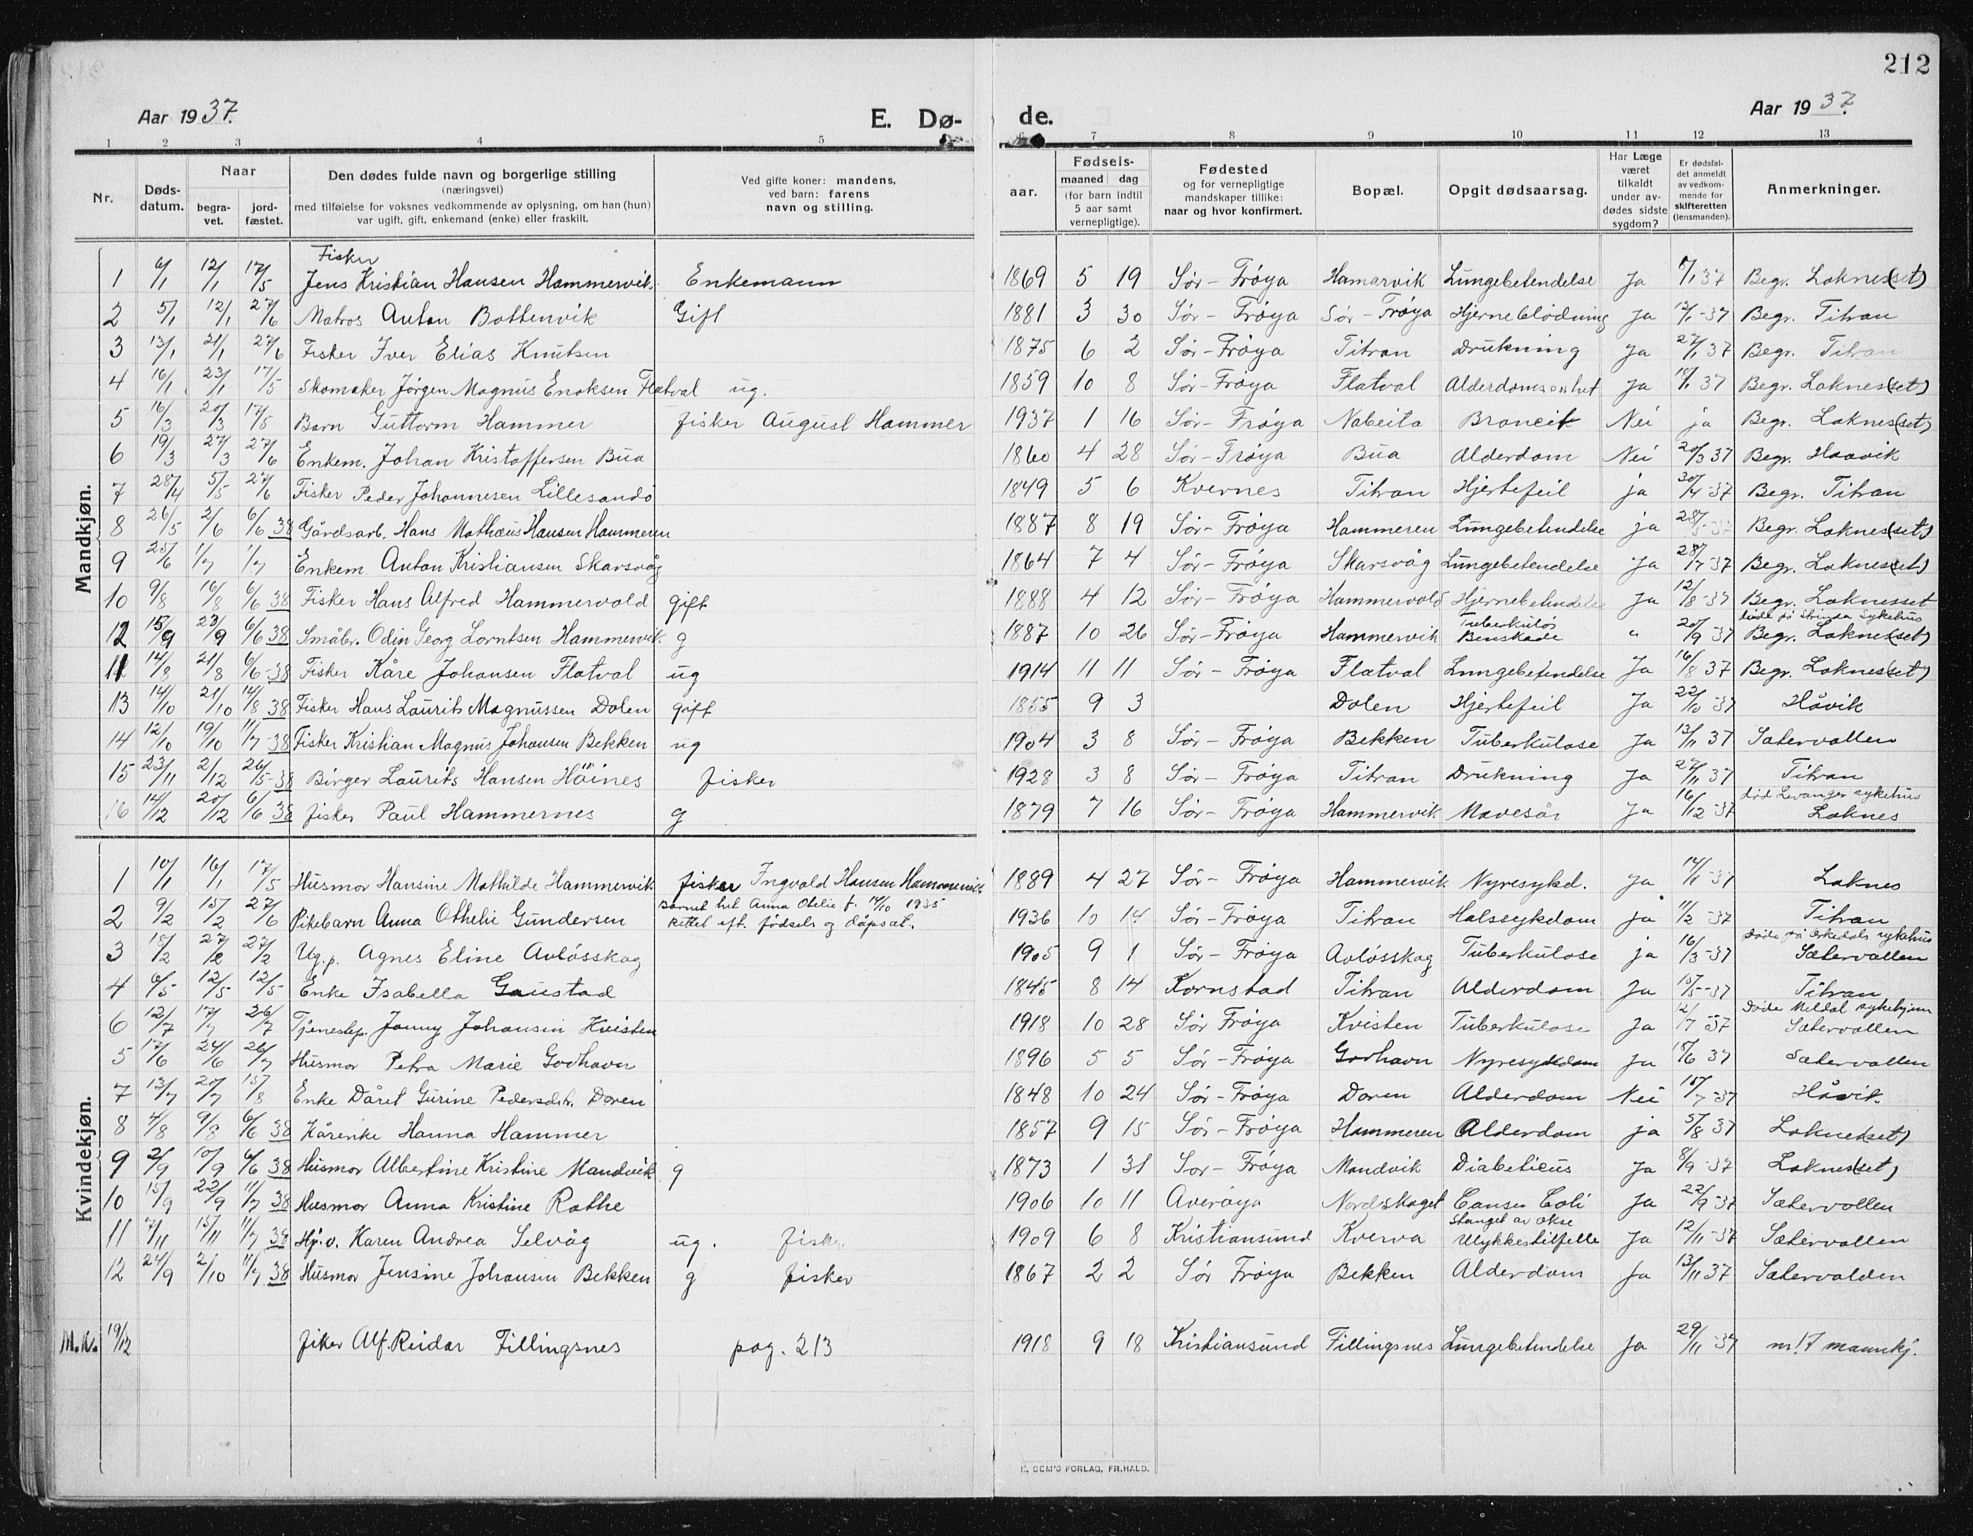 212
Aar 1937. E. Dø- de. Aar 1937.
1 2 3 4 5 7 8 9 10 11 12 13
Nr. Døds-datum. Naar begra-vet. jord-fæstet. Den dødes fulde navn og borgerlige stilling (næringsvei) med tilføielse for voksnes vedkommende av oplysning, om han (hun) var ugift, gift, enkemand (enke) eller fraskilt. Ved gifte koner: mandens, ved barn: farens navn og stilling. aar. Fødsels- maaned dag (for barn indtil 5 aar samt vernepligtige). Fødested og for vernepligtige mandskaper tillike: naar og hvor konfirmert. Bopæl. Opgit dødsaarsag. Har Læge været tilkaldt under av-dødes sidste sygdom? Er dødsfal-det anmeldt av vedkom-mende for skifteretten (lensmanden). Anmerkninger.
Mandkjøn.
1 6/1 12/1 17/5 Fisker Jens Kristian Hansen Hammervik. Enkemann 1869 5 19 Sør-Frøya Hamarvik Lungebetendelse Ja 7/1 37 Begr. Loknes(set)
2 5/1 12/1 27/6 Matros Anton Bottenvik Gift 1881 3 30 Sør-Frøya Sør-Frøya Hjerneblødning Ja 12/1-37 Begr. Titran
3 13/1 21/1 27/6 Fisker Iver Elias Knutsen 1875 6 2 Sør-Frøya Titran Drukning Ja 27/1 37 Begr. Titran
4 16/1 23/1 17/5 Skomaker Jörgen Magnus Enoksen Flatval ug. 1859 10 8 Sør-Frøya Flatval Alderdomssvakhet Ja 18/1 37 Begr. Loknes(set)
5 16/3 20/3 17/5 Barn Guttorm Hammer fisker August Hammer 1937 1 16 Sør-Frøya Nabeita Broncit Nei ja Begr. Loknes(set)
6 19/3 27/3 27/6 Enkem. Johan Kristoffersen Bua 1860 4 28 Sør-Frøya Bua Alderdom Nei 20/3 37 Begr. Haavik
7 28/4 5/5 27/6 Fisker Peder Johannesen Lillesandö 1849 5 6 Kvernes Titran Hjertefeil ja 30/4-37 Begr. Titran
8 26/5 2/6 6/6 38 Gårdsarb. Hans Mathæus Hansen Hammeren 1887 8 19 Sør-Frøya Hammeren Lungebetendelse ja 28/5-37 Begr. Loknes(set)
9 25/6 1/7 1/7 Enkem. Anton Kristiansen Skarsvåg 1864 7 4 Sør-Frøya Skarsvåg Lungebetendelse Ja 28/7 37 Begr. Loknes(set)
10 9/8 16/8 6/6 38 Fisker Hans Alfred Hammervold gift 1888 4 12 Sør-Frøya Hammervold Hjernebetendelse Ja 12/8-37 Begr. Loknesset
12 15/9 23/9 6/6 38 Småbr. Odin Georg Lorntsen Hammervik g 1887 10 26 Sør-Frøya Hammervik Tuberkuløs Benskade " 20/9 37 døde på Strinda Sykehus Begr. Loknes(set)
11 14/8 21/8 6/6-38 Fisker Kåre Johansen Flatval ug 1914 11 11 Sør-Frøya Flatval Lungebetendelse Ja 16/8 37 Begr. Loknes(set)
13 14/10 21/10 14/8 38 Fisker Hans Laurits Magnussen Dolen gift 1855 9 3 Dolen Hjertefeil Ja 22/10-37 Håvik
14 12/10 19/10 11/7-38 Fisker Kristian Magnus Johansen Bekken ug 1904 3 8 Sør-Frøya Bekken Tuberkulose Ja 13/11 37 Satervallen
15 23/11 2/12 26/5-38 Birger Laurits Hansen Höines fisker 1928 3 8 Sør-Frøya Titran Drukning Ja 27/11 37 Titran
16 14/12 20/12 6/6 38 fisker Paul Hammernes g 1879 7 16 Sør-Frøya Hammervik Mavesår Ja 16/12-37 død Levanger sykehus Loknes
Kvindekjøn.
1 10/1 16/1 17/5 Husmor Hansine Mathilde Hammervik fisker Ingvald Hansen Hammervik 1889 4 27 Sør-Frøya Hammervik Nyresykd. Ja 14/1-37 Loknes
2 9/2 15/2 27/6 Pikebarn Anna Othelie Gundersen Barnet het Anna Otelie f. 14/10 1935 rettet eft. fødsels og dåpsat. 1936 10 14 Sør-Frøya Titran Halssykdom ja 11/2-37 Titran
3 18/2 27/2 27/2 Ug.p. Agnes Eline Avlösskag 1905 9 1 Sør-Frøya Avlösskag Tuberkulose ja 16/3-37 Døde på Orkedals sykehus Sætervallen
4 6/5 12/5 12/5 Enke Isabella Gaustad 1845 8 14 Kornstad Titran Alderdom Ja 15/5-37 Titran
6 12/7 17/7 26/7 Tjenestep. Jonny Johansen Kvisten 1918 10 28 Sør Frøya Kvisten Tuberkulose Ja 12/7-37 Døde Meldal sykehjem Sætervallen
5 17/6 24/6 26/7 Husmor Petra Marie Godhavn 1896 5 5 Sør-Frøya Godhavn Nyresykdom Ja 18/6 37 Sætervallen
7 13/7 20/7 15/8 Enke Dåret Gurine Pedersdtr. Doren 1848 10 24 Sør-Frøya Doren Alderdom Nei 15/7-37 Håvik.
8 4/8 9/8 6/6 38 Kårenke Hanna Hammer 1857 9 15 Sør-Frøya Hammeren Alderdom ja 5/8 37 Loknes(set)
9 2/9 10/9 6/6 38 Husmor Albertine Kristine Mandvik g 1873 1 31 Sør-Frøya Mandvik Diabeticus Ja 8/9-37 Loknes(set)
10 15/9 22/9 11/7 38 Husmor Anna Kristine Rathe 1906 10 11 Averøya Nordskaget Cancer Coli Ja 22/9-37 Sætervollen
11 7/11 15/11 11/7 38 Hj.v. Karen Andrea Selvåg ug. fisker 1909 6 8 Kristiansund Kverva Stanget av okse Ulykkestilfelle Ja 12/11-37 Sætervallen
12 24/9 2/10 11/7 38 Husmor Jensine Johansen Bekken g fisker 1867 2 2 Sør Frøya Bekken Alderdom Ja 13/11 37 Sætervalden
M.K. 19/12 fiker Alf. Reidar Fillingsnes pag. 213 1918 9 18 Kristiansund Fillingsnes Lungebetendelse Ja 29/11-37 nr. 17 mannkj.
E. SEM'S FORLAG, FR.HALD.